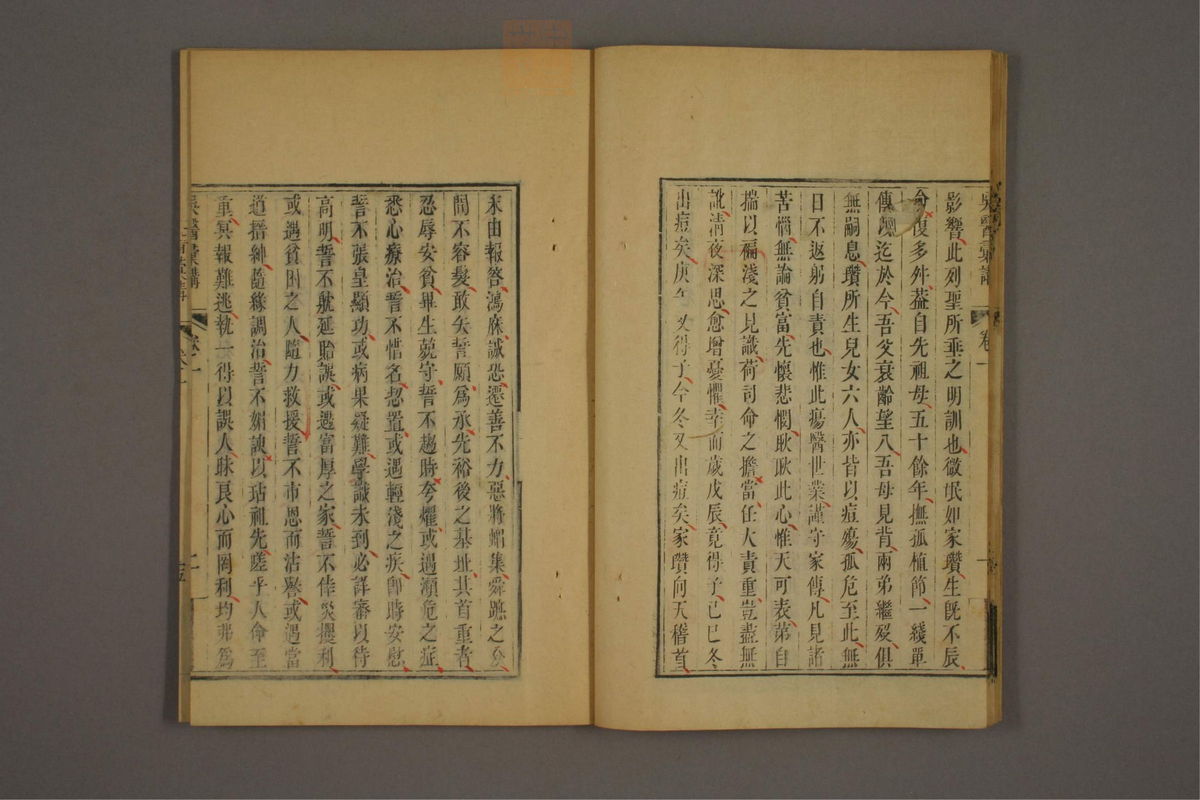 影響此列聖所垂之明訓也微氓如家瓚生旣不辰
命復多舛葢自先祖母五十餘年撫孤植節一綫單
傳迄於今吾父衰齡望八吾母見背兩弟繼歿俱
無嗣息瓚所生兒女六人亦皆以痘殤孤危至此無
日不返躬自責也惟此瘍醫世業謹守家傳凡見諸
苦惱無論貧富先懷悲憫耿耿此心惟天可表第自
揣以褊淺之見識荷司命之擔當任大責重豈盡無
訛清夜深思愈增憂懼幸而歲戊辰竟得子己巳冬
出痘矣庚午又得子今冬又出痘矣家瓚向天稽首
吳醫彙講 卷一
末由報答鴻庥誠恐遷善不力惡將媚集舜蹠之分
間不容髮敢矢誓願爲承先裕後之基址其首重者
忍辱安貧畢生兢守誓不趨時夸燿或遇瀕危之症
悉心療治誓不惜名恝置或遇輕淺之疾卽時安慰
誓不張皇顯功或病果疑難學識未到必詳審以待
高明誓不躭延貽誤或遇富厚之家誓不侔災攫利
或遇貧困之人隨力救援誓不市恩而沽譽或遇當
道搢紳隨緣調治誓不媚諛以玷祖先嗟乎人命至
重冥報難逃執一得以誤人昧良心而罔利均弗爲
吳醫彙講 卷一